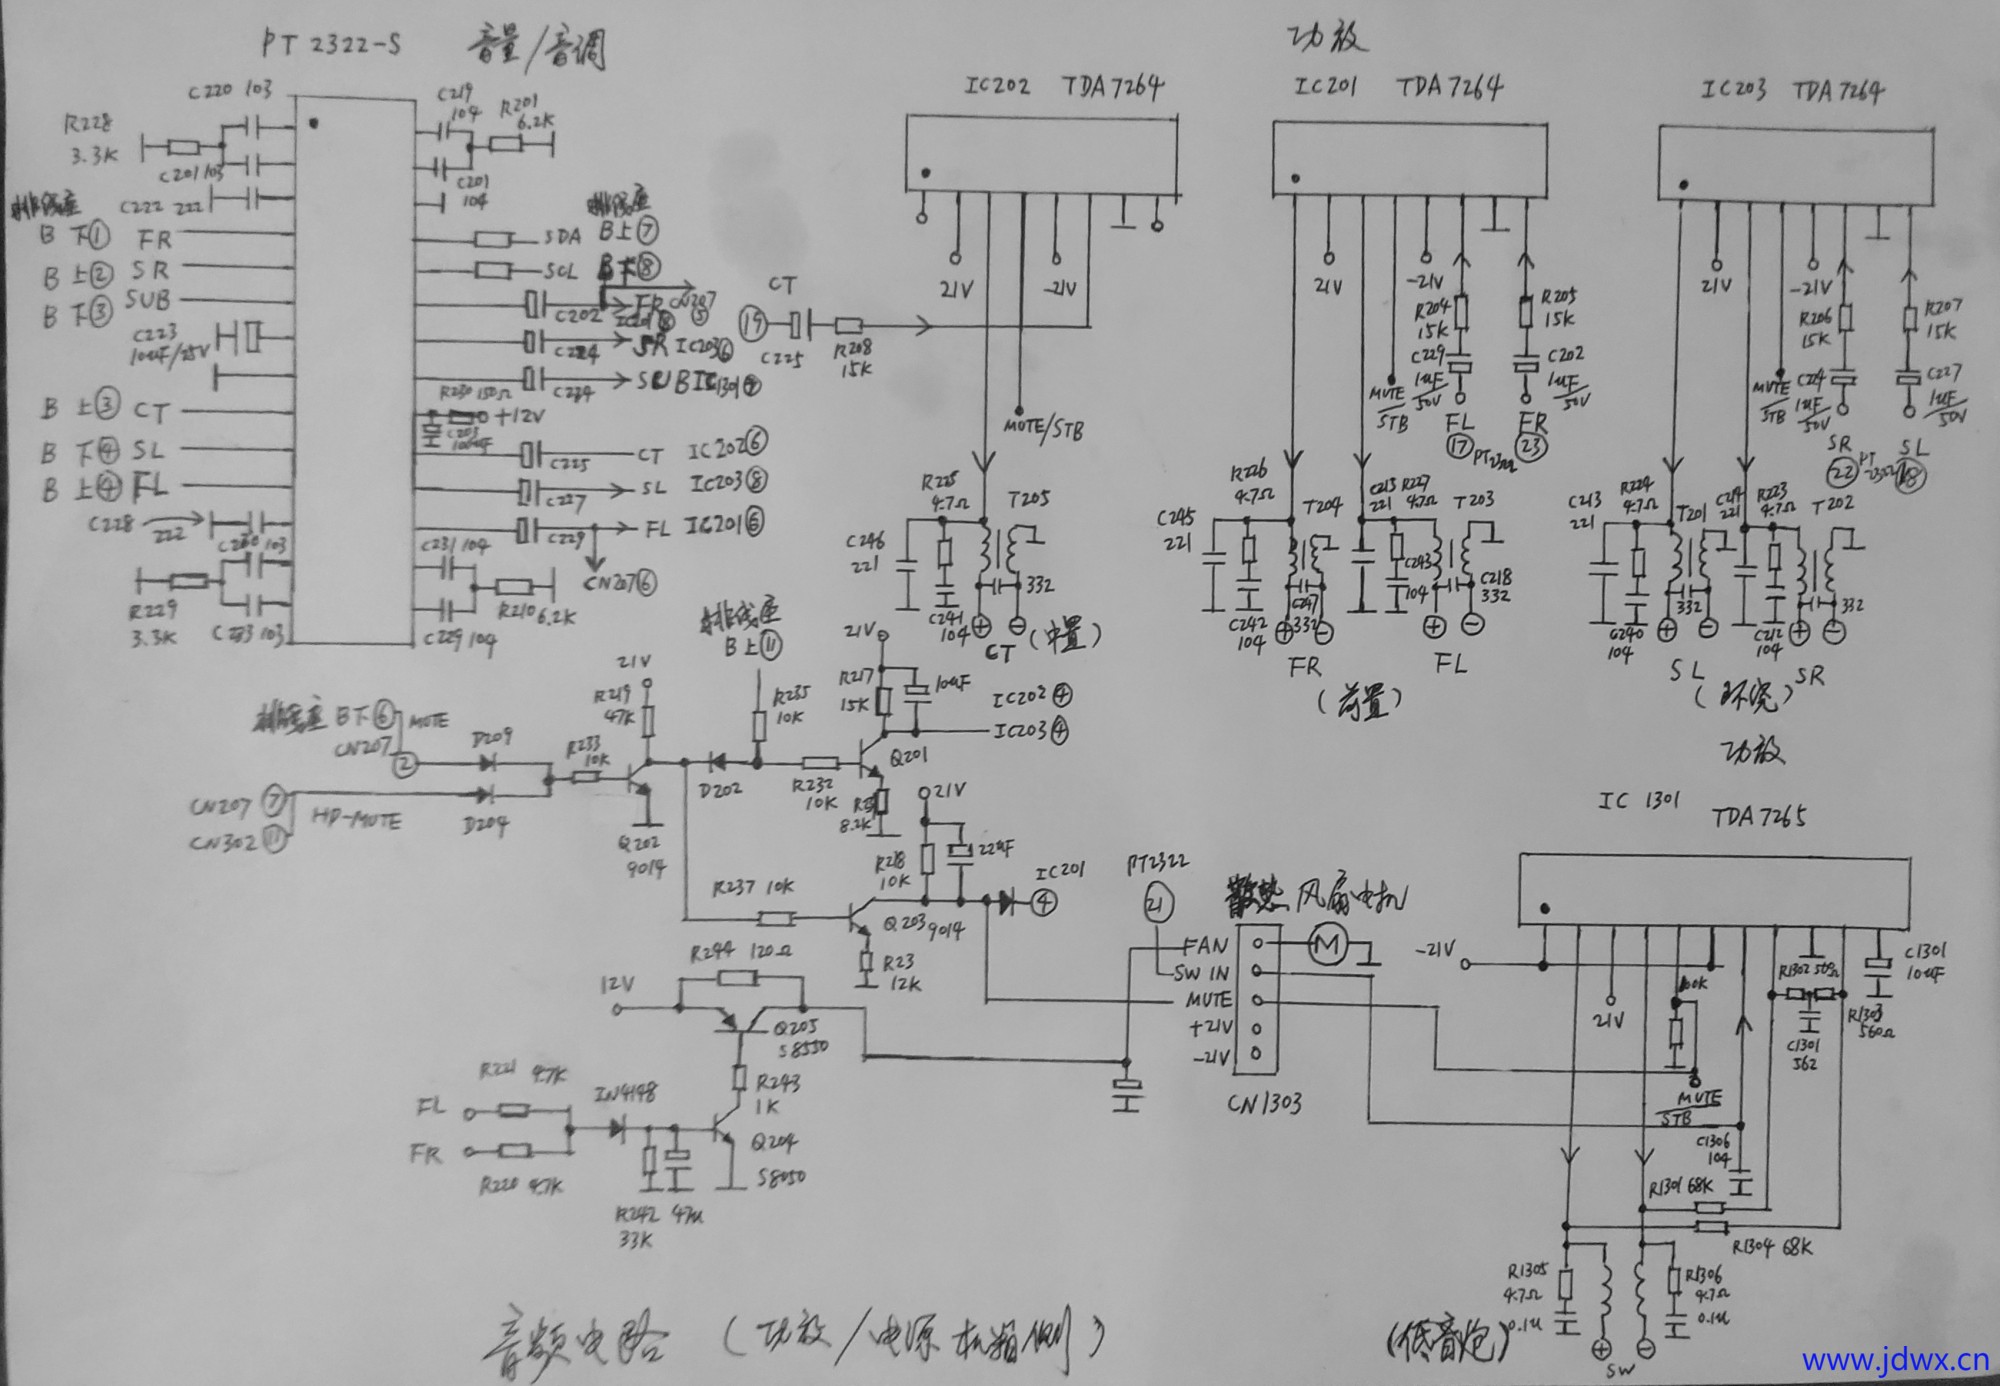 PT 2322-S 音量/音调
功放
C220 103
R228
3.3K
C201 103
C222 222
C219
104
R201
6.2K
C201
104
排线座
B 下① FR
B 上② SR
B 下③ SUB
C223
10uF/25V
B 上③ CT
B 下④ SL
B 上④ FL
C228
222
C280 103
R229
3.3K
C233 103
排线座
SDA B上⑦
SCL B下⑧
C202 FR CN207
⑤
SR IC203⑥
C234 SUB IC1301
R230 150Ω
+12V
C203
100uF
C225 CT IC202⑥
C227 SL IC203⑧
C229 FL IC201⑥
CN207⑥
C231 104
R210 6.2K
C229 104
IC202 TDA7264
21V
-21V
CT
⑲
C225
R208
15K
MUTE/STB
R225
4.7Ω
T205
C246
221
332
C241
104
⊕ ⊖
CT (中置)
IC201 TDA7264
21V
-21V
R204
15K
R205
15K
C229
1uF/50V
C202
1uF/50V
MUTE/STB
FL
⑰
PT2322
FR
㉓
R226
4.7Ω
T204
C245
221
C242
104
C247
332
⊕ ⊖
FR
C215
221
R227
4.7Ω
T203
C243
104
C218
332
⊕ ⊖
FL
(前置)
IC203 TDA7264
21V
-21V
R206
15K
R207
15K
MUTE/STB
C224
1uF/50V
C227
1uF/50V
SR
㉒
PT2322
SL
⑱
C213
221
R224
4.7Ω
T201
C240
104
332
⊕ ⊖
SL
C214
221
R223
4.7Ω
T202
C212
104
332
⊕ ⊖
SR
(环绕)
功放
排线座
B上⑪
21V
R219
47K
R235
10K
21V
R217
15K
10uF
IC202④
IC203④
排线座 B下⑥ MUTE
CN207
②
D209
R233
10K
CN207 ⑦
CN302 ⑪
HD-MUTE
D204
Q202
9014
D202
R232
10K
Q201
8.2K
21V
R218
10K
22uF
IC201
④
R237 10K
Q203 9014
R23
12K
R244 120Ω
12V
Q205
S8550
R243
1K
R221 4.7K
FL
FR
R220 4.7K
IN4148
Q204
S8050
R242 47u
33K
PT2322
㉑
散热风扇电机
M
FAN
SW IN
MUTE
+21V
-21V
CN1303
IC 1301 TDA7265
-21V
21V
100K
R1302 560Ω
R1303
560Ω
C1301
562
C1301
10uF
MUTE/STB
C1306
104
R1301 68K
R1304 68K
R1305
4.7Ω
0.1u
R1306
4.7Ω
0.1u
⊕ ⊖
SW
(低音炮)
音频电路 (功放/电源机箱侧)
www.jdwx.cn